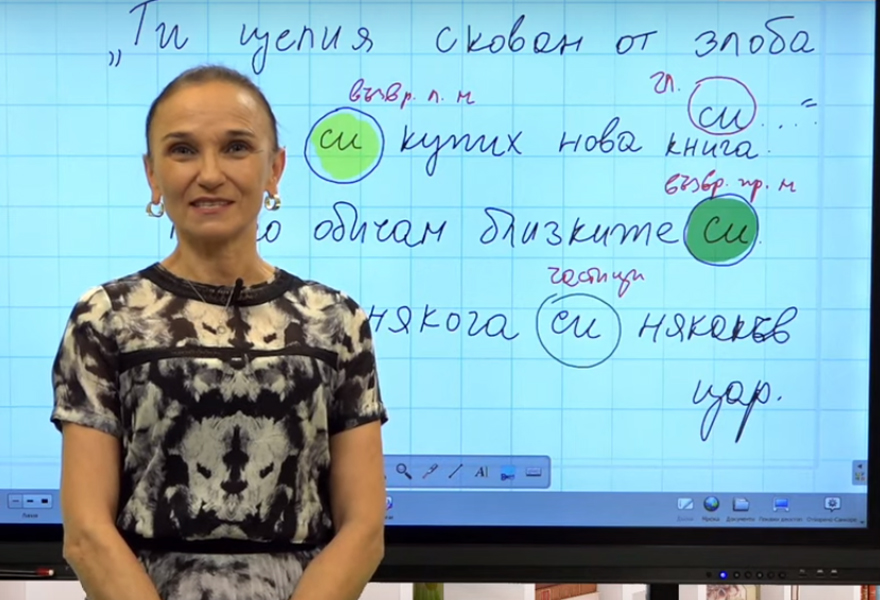 „Ти целия скован от злоба
възвр. л. м гл. си ...“
си купих нова книга.
възвр. пр. м
обичам близките си.
частици
някога си някакъв
цар.